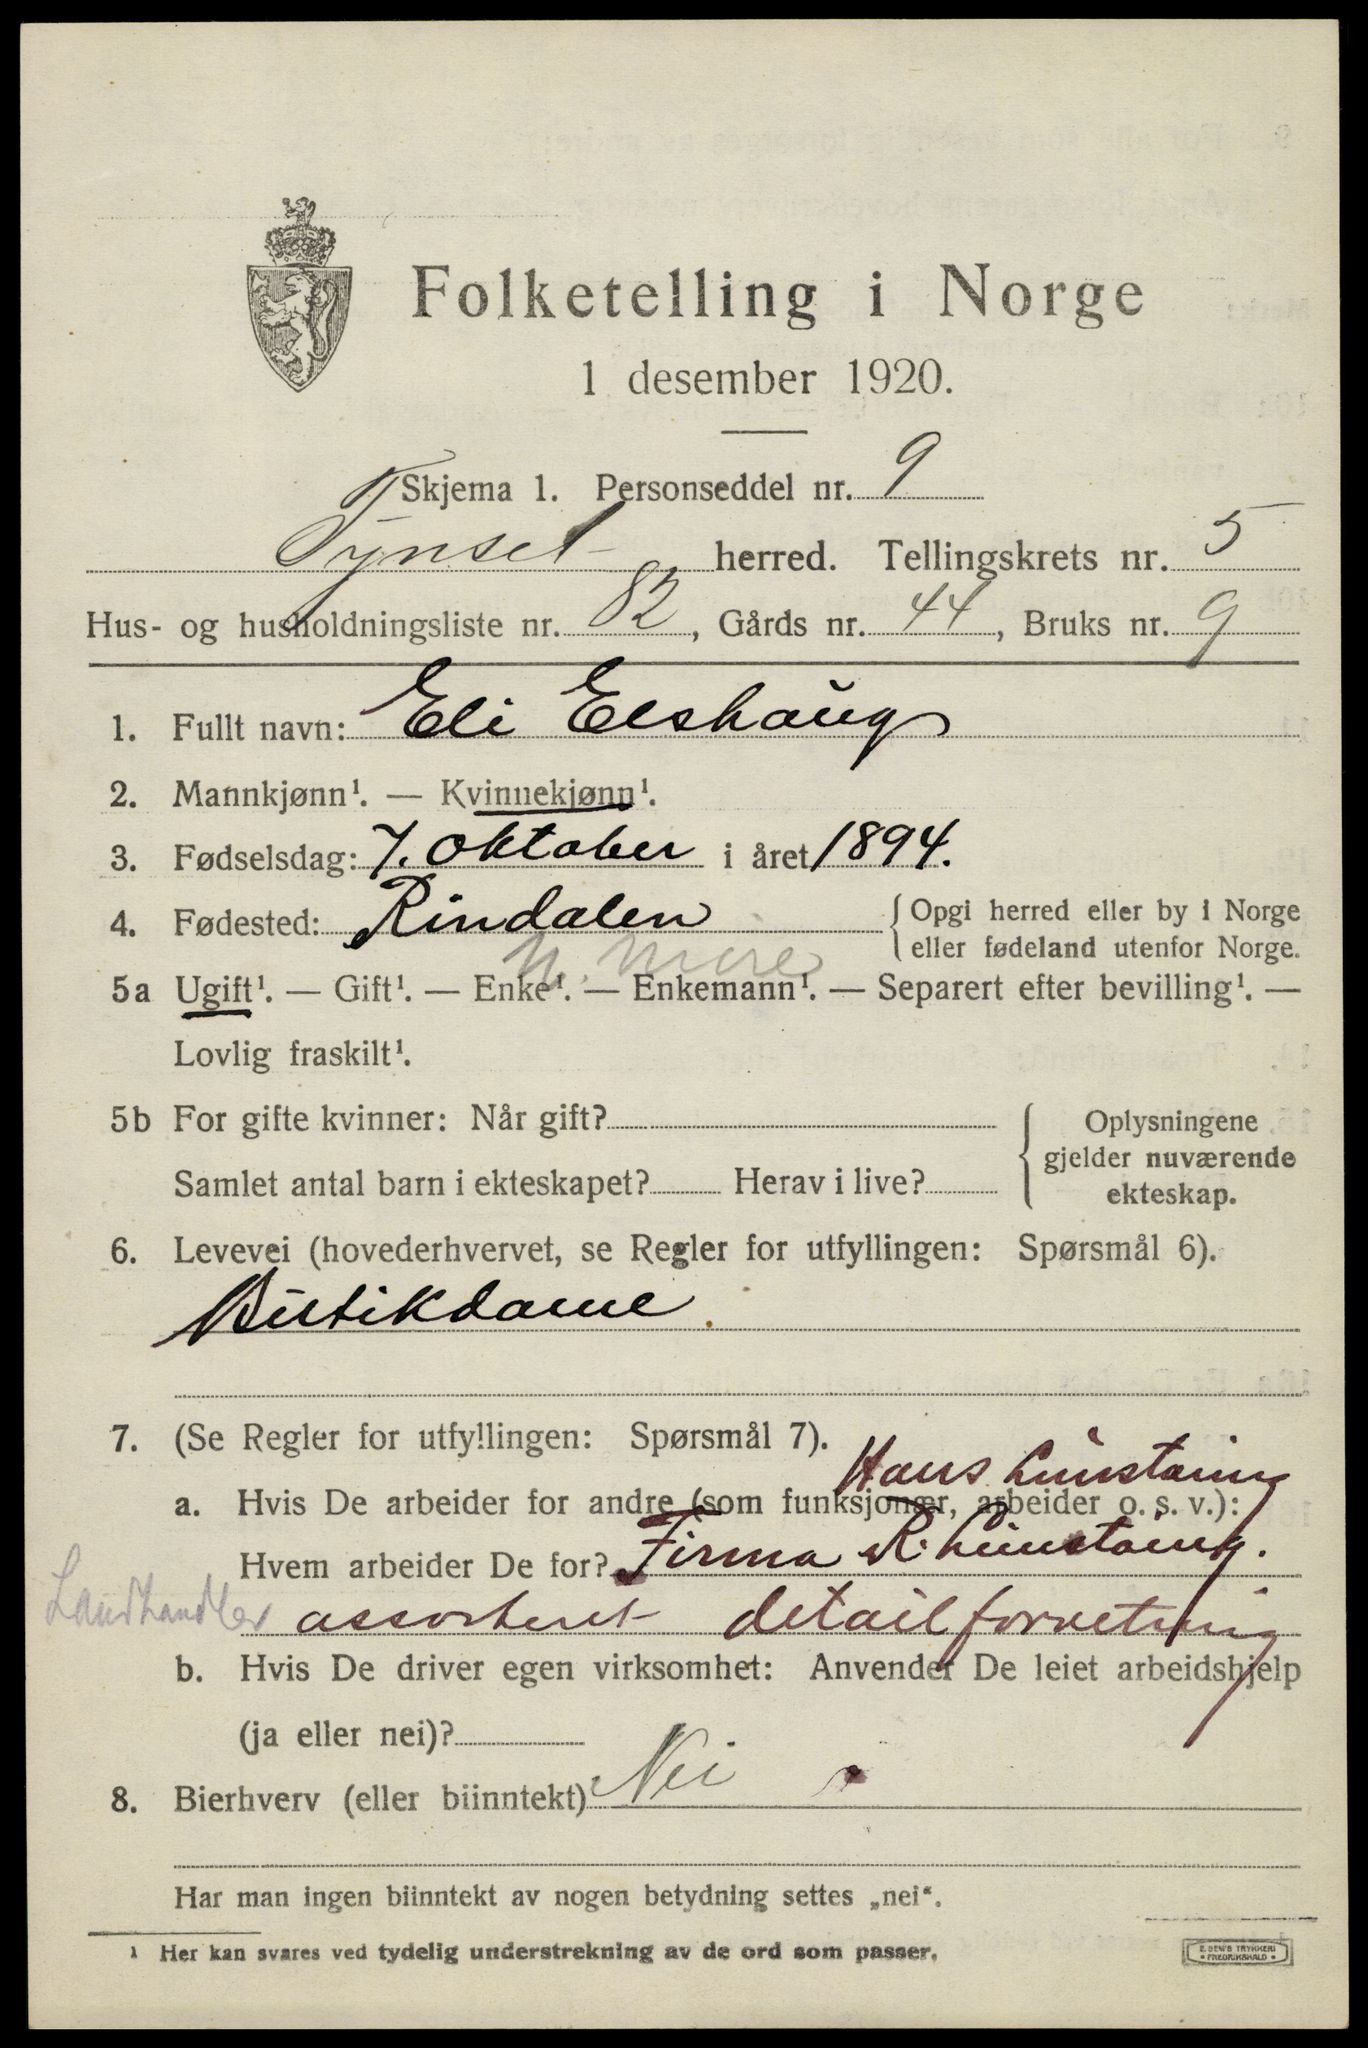 Folketelling i Norge
1 desember 1920.
Skjema 1. Personseddel nr. 9
Tynset herred. Tellingskrets nr. 5
Hus- og husholdningsliste nr. 82, Gårds nr. 44, Bruks nr. 9
1. Fullt navn: Eli Elshaug
2. Mannkjønn¹. — Kvinnekjønn¹.
3. Fødselsdag: 7. oktober i året 1894.
4. Fødested: Rindalen { Opgi herred eller by i Norge
eller fødeland utenfor Norge.
N. Møre
5a Ugift¹. — Gift¹. — Enke¹. — Enkemann¹. — Separert efter bevilling¹. —
Lovlig fraskilt¹.
5b For gifte kvinner: Når gift? { Oplysningene
gjelder nuværende
Samlet antal barn i ekteskapet? Herav i live? ekteskap.
6. Levevei (hovederhvervet, se Regler for utfyllingen: Spørsmål 6).
Butikdame.
7. (Se Regler for utfyllingen: Spørsmål 7).
Hans
a. Hvis De arbeider for andre (som funksjonær, arbeider o. s. v.):
Hvem arbeider De for? Firma R.
Landhandler assorteret detailforretning
b. Hvis De driver egen virksomhet: Anvender De leiet arbeidshjelp
(ja eller nei)?
8. Bierhverv (eller biinntekt) Nei
Har man ingen biinntekt av nogen betydning settes „nei“.
¹ Her kan svares ved tydelig understrekning av de ord som passer.
E. SEM'S TRYKKERI
• FREDRIKSHALD •